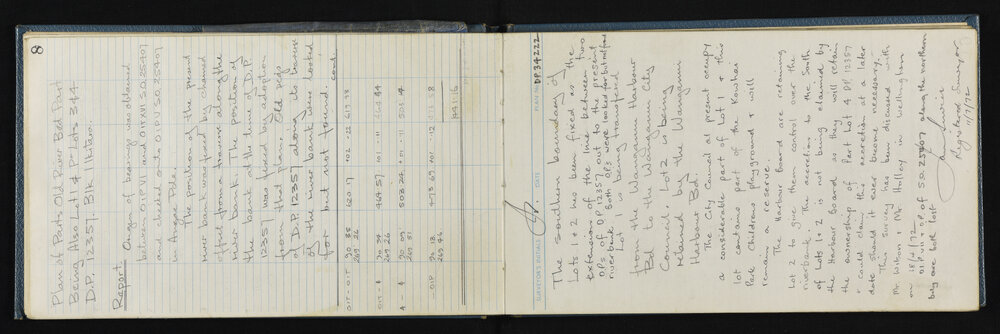 8
Plan of Parts Old River Bed Part
Being Also Lot 1 & Pt Lots 3 & 4
D.P. 12357. Blk I Ikitara.
Report:
Origin of bearing was obtained
between OIP VI and OIP XVI SO.25907
and checked onto OIP V SO.25907
in Anzac Pde.
The position of the present
river bank was fixed by chained
offset from a traverse along the
river bank. The position of
the bank at the time of D.P.
12357 was fixed by adoption
from that plan. Old pegs
of D.P. 12357 along its
of the river bank were looked
for but not found. cont.
OIT - OIT 90 38
269 26
620 17 102 · 22 619 38
OIT - 90 34
269 26
464 57 · 11 464 54
A - 90 09
269 51
503 24 · 11 503
- OIP 90 13
269 46
473 69 · 12 473
SURVEYOR'S INITIALS DATE PLAN No. DP 34222
The southern boundary of
Lots 1 & 2 has been fixed as the
extension of the line between two
OP's of DP 12357 out to the present
riverbank. Both OP's were looked for but not found
Lot 1 is being transferred
from the Wanganui Harbour
Bd to the Wanganui City
Council. Lot 2 is being
retained by the Wanganui
Harbour Bd.
The City Council at present occupy
a considerable part of Lot 1 & this
lot contains part of the Kowhai
Park Childrens playground & will
remain a reserve.
The Harbour Board are retaining
Lot 2 to give them control over the
riverbank. The accretion to the South
of Lots 1 & 2 is not being claimed by
the Harbour Board as they will retain
the ownership of Part Lot 4 DP 12357
& could claim this accretion at a later
date should it ever become necessary.
This survey has been discussed with
Mr. Wilson & Mr. Holley in Wellington
on 18/4/72.
OIP VII & OIP of SO.25907 along the northern
bdy are both lost
Registered Surveyor
11/7/72